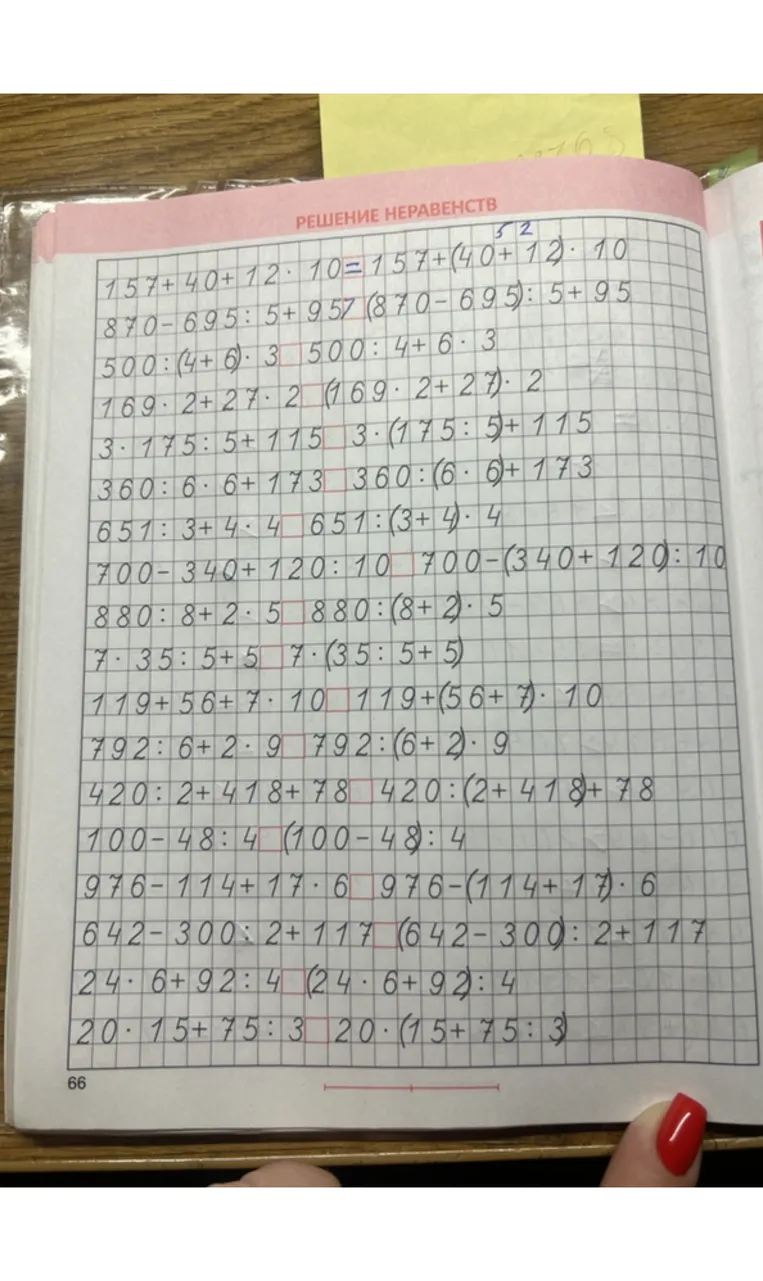 РЕШЕНИЕ НЕРАВЕНСТВ
5 2
157+40+12·10=157+(40+12)·10
870-695:5+95>(870-695):5+95
500:(4+6)·3□500:4+6·3
169·2+27·2□(169·2+27)·2
3·175:5+115□3·(175:5)+115
360:6·6+173□360:(6·6)+173
651:3+4·4□651:(3+4)·4
700-340+120:10□700-(340+120):10
880:8+2·5□880:(8+2)·5
7·35:5+5□7·(35:5+5)
119+56+7·10□119+(56+7)·10
792:6+2·9□792:(6+2)·9
420:2+418+78□420:(2+418)+78
100-48:4□(100-48):4
976-114+17·6□976-(114+17)·6
642-300:2+117□(642-300):2+117
24·6+92:4□(24·6+92):4
20·15+75:3□20·(15+75:3)
66